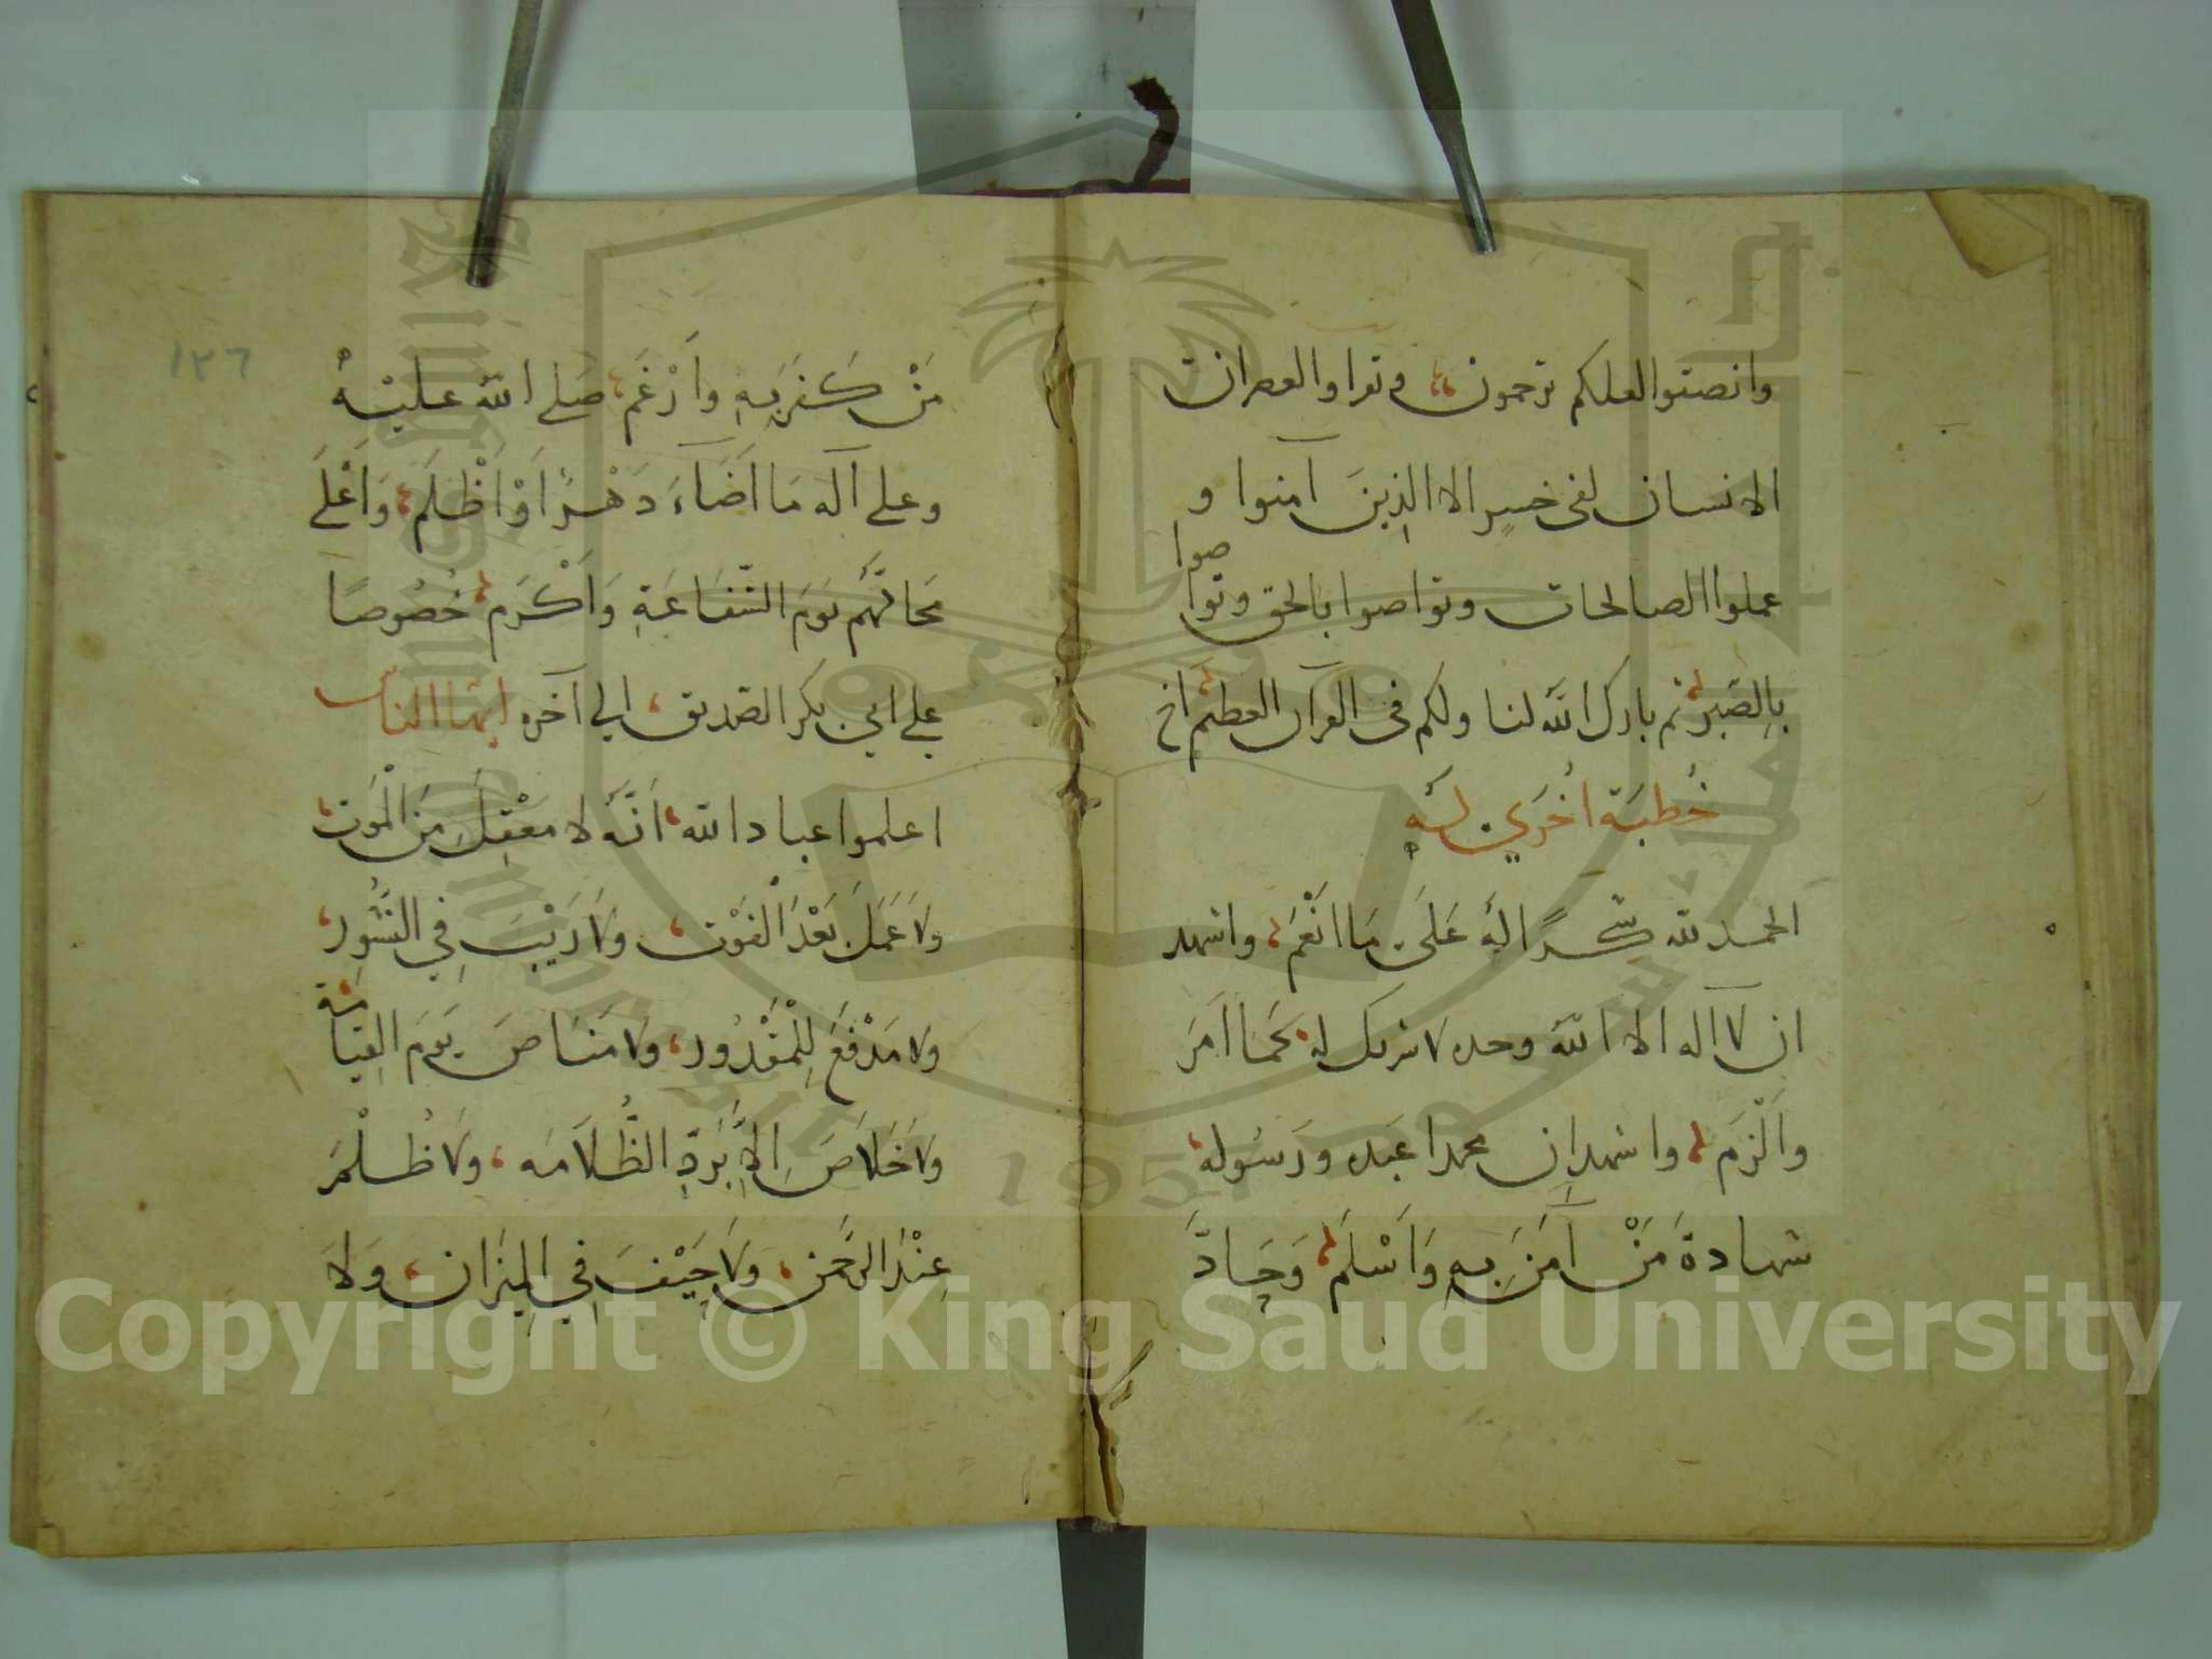 وانصتوا لعلكم ترحمون، ويقرا والعصر ان
الانسان لفى خسرٍ الا الذِينَ آمنوا و
عملوا الصالحات وتواصوا بالحق وتوا
صوا
بِالصَبر، ثم بارك الله لنا ولكم فى القرآن العظيم اخ
خُطبَة اخُرَي لهُ
الحمد لله شكرًا لهُ عَلَى مَا انْعَمَ، واشهد
ان لا اله الا الله وحده لا شريك له، كَمَا امَرَ
والْزَمَ، واشهد ان محمدا عَبده ورَسُوله،
شهادةَ مَنْ آمَنَ بِهِ وَاَسْلَمَ، وَحَادَّ
١٣٦
مَنْ كَفَرَ بِهِ وارْغَمَ، صَلى الله عليْهْ
وعلى آله مَا اَضَاءَ دَهْرٌ اَوْ اَظْلَمَ، وَاَعْلَى
مَحَلَّهُم يَومَ الشَّفَاعَةِ وَاَكْرَم، خُصُوصًا
على ابي بكر الصديق، الى آخره ايها الناس
اعلموا عباد الله، اَنَّهُ لا مَعْقِلَ مِنَ الْمَوت،
ولَا عَمَلَ بَعْدَ الْفَوْت، ولَا رَيْبَ فِي النُّشُورِ،
ولا مَدْفَعَ لِلْمَقْدُور، ولا مَنَاصَ يَومَ القِيَا
مَة
ولَا خَلَاصَ اِلَّا بِرَدِّ الظُّلَامَه، ولَا ظُلْمَ
عِنْدَ الرَّحمَنِ، ولَا حَيْفَ فِي المِيزَان، وَلَا
Copyright © King Saud University
1957